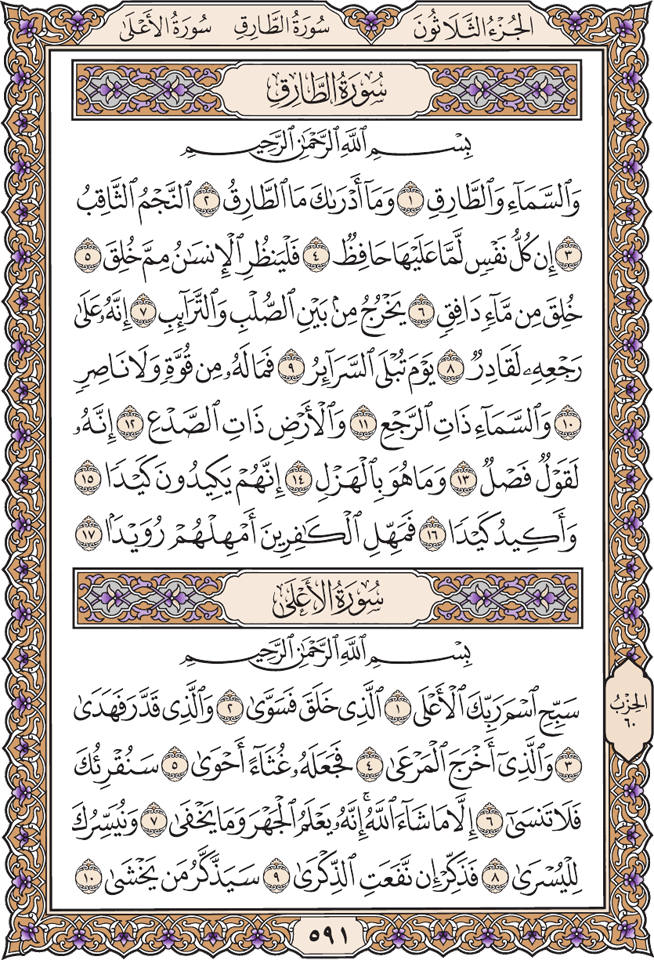 الجُزْءُ الثَّلَاثُونَ سُورَةُ الطَّارِقِ سُورَةُ الأَعْلَى
سُورَةُ الطَّارِقِ
بِسْمِ اللَّهِ الرَّحْمَٰنِ الرَّحِيمِ
وَالسَّمَاءِ وَالطَّارِقِ ١ وَمَا أَدْرَىٰكَ مَا الطَّارِقُ ٢ النَّجْمُ الثَّاقِبُ
٣ إِن كُلُّ نَفْسٍ لَّمَّا عَلَيْهَا حَافِظٌ ٤ فَلْيَنظُرِ الْإِنسَٰنُ مِمَّ خُلِقَ ٥
خُلِقَ مِن مَّاءٍ دَافِقٍ ٦ يَخْرُجُ مِنۢ بَيْنِ الصُّلْبِ وَالتَّرَائِبِ ٧ إِنَّهُۥ عَلَىٰ
رَجْعِهِۦ لَقَادِرٌ ٨ يَوْمَ تُبْلَى السَّرَائِرُ ٩ فَمَا لَهُۥ مِن قُوَّةٍ وَلَا نَاصِرٍ
١٠ وَالسَّمَاءِ ذَاتِ الرَّجْعِ ١١ وَالْأَرْضِ ذَاتِ الصَّدْعِ ١٢ إِنَّهُۥ
لَقَوْلٌ فَصْلٌ ١٣ وَمَا هُوَ بِالْهَزْلِ ١٤ إِنَّهُمْ يَكِيدُونَ كَيْدًا ١٥
وَأَكِيدُ كَيْدًا ١٦ فَمَهِّلِ الْكَٰفِرِينَ أَمْهِلْهُمْ رُوَيْدًۢا ١٧
سُورَةُ الأَعْلَى
بِسْمِ اللَّهِ الرَّحْمَٰنِ الرَّحِيمِ
سَبِّحِ اسْمَ رَبِّكَ الْأَعْلَى ١ الَّذِي خَلَقَ فَسَوَّىٰ ٢ وَالَّذِي قَدَّرَ فَهَدَىٰ
٣ وَالَّذِي أَخْرَجَ الْمَرْعَىٰ ٤ فَجَعَلَهُۥ غُثَاءً أَحْوَىٰ ٥ سَنُقْرِئُكَ
فَلَا تَنسَىٰ ٦ إِلَّا مَا شَاءَ اللَّهُ ۚ إِنَّهُۥ يَعْلَمُ الْجَهْرَ وَمَا يَخْفَىٰ ٧ وَنُيَسِّرُكَ
لِلْيُسْرَىٰ ٨ فَذَكِّرْ إِن نَّفَعَتِ الذِّكْرَىٰ ٩ سَيَذَّكَّرُ مَن يَخْشَىٰ ١٠
الحِزْبُ
٦٠
٥٩١